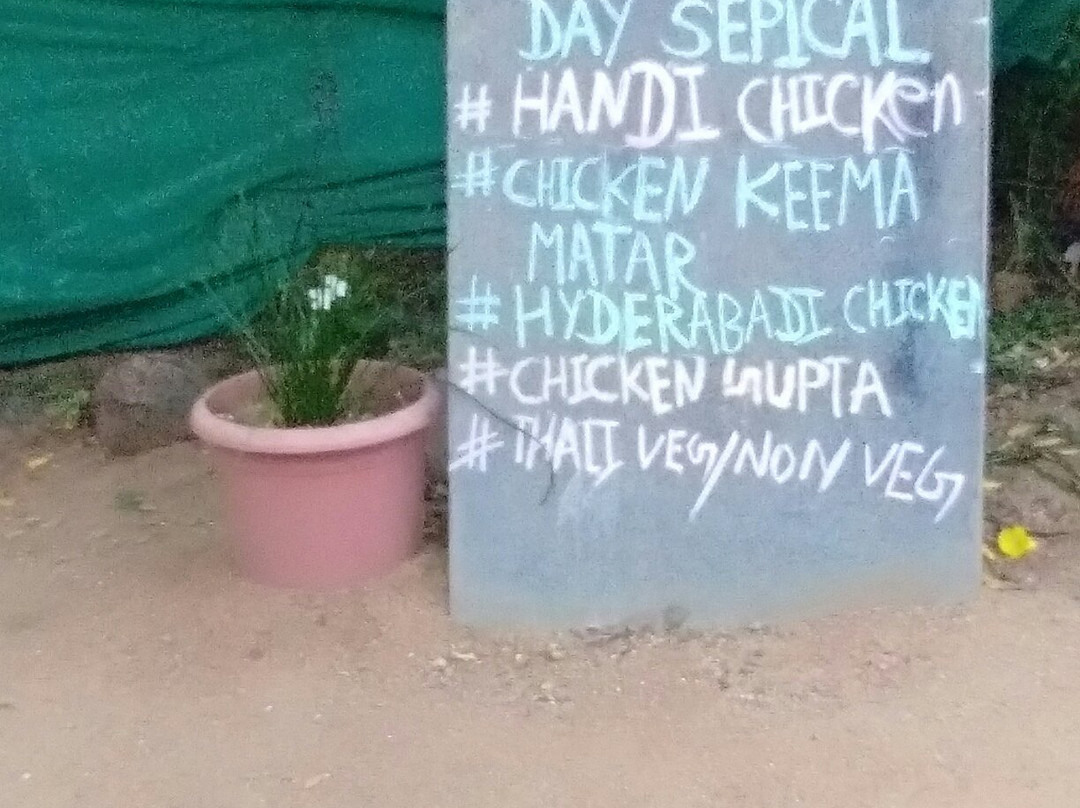 DAY SEPICAL
# HANDI CHICKen
# CHICKEN KEEMA
MATAR
# HYDERABADI CHICKEN
# CHICKEN MUPTA
# THALI VEG/NON VEG